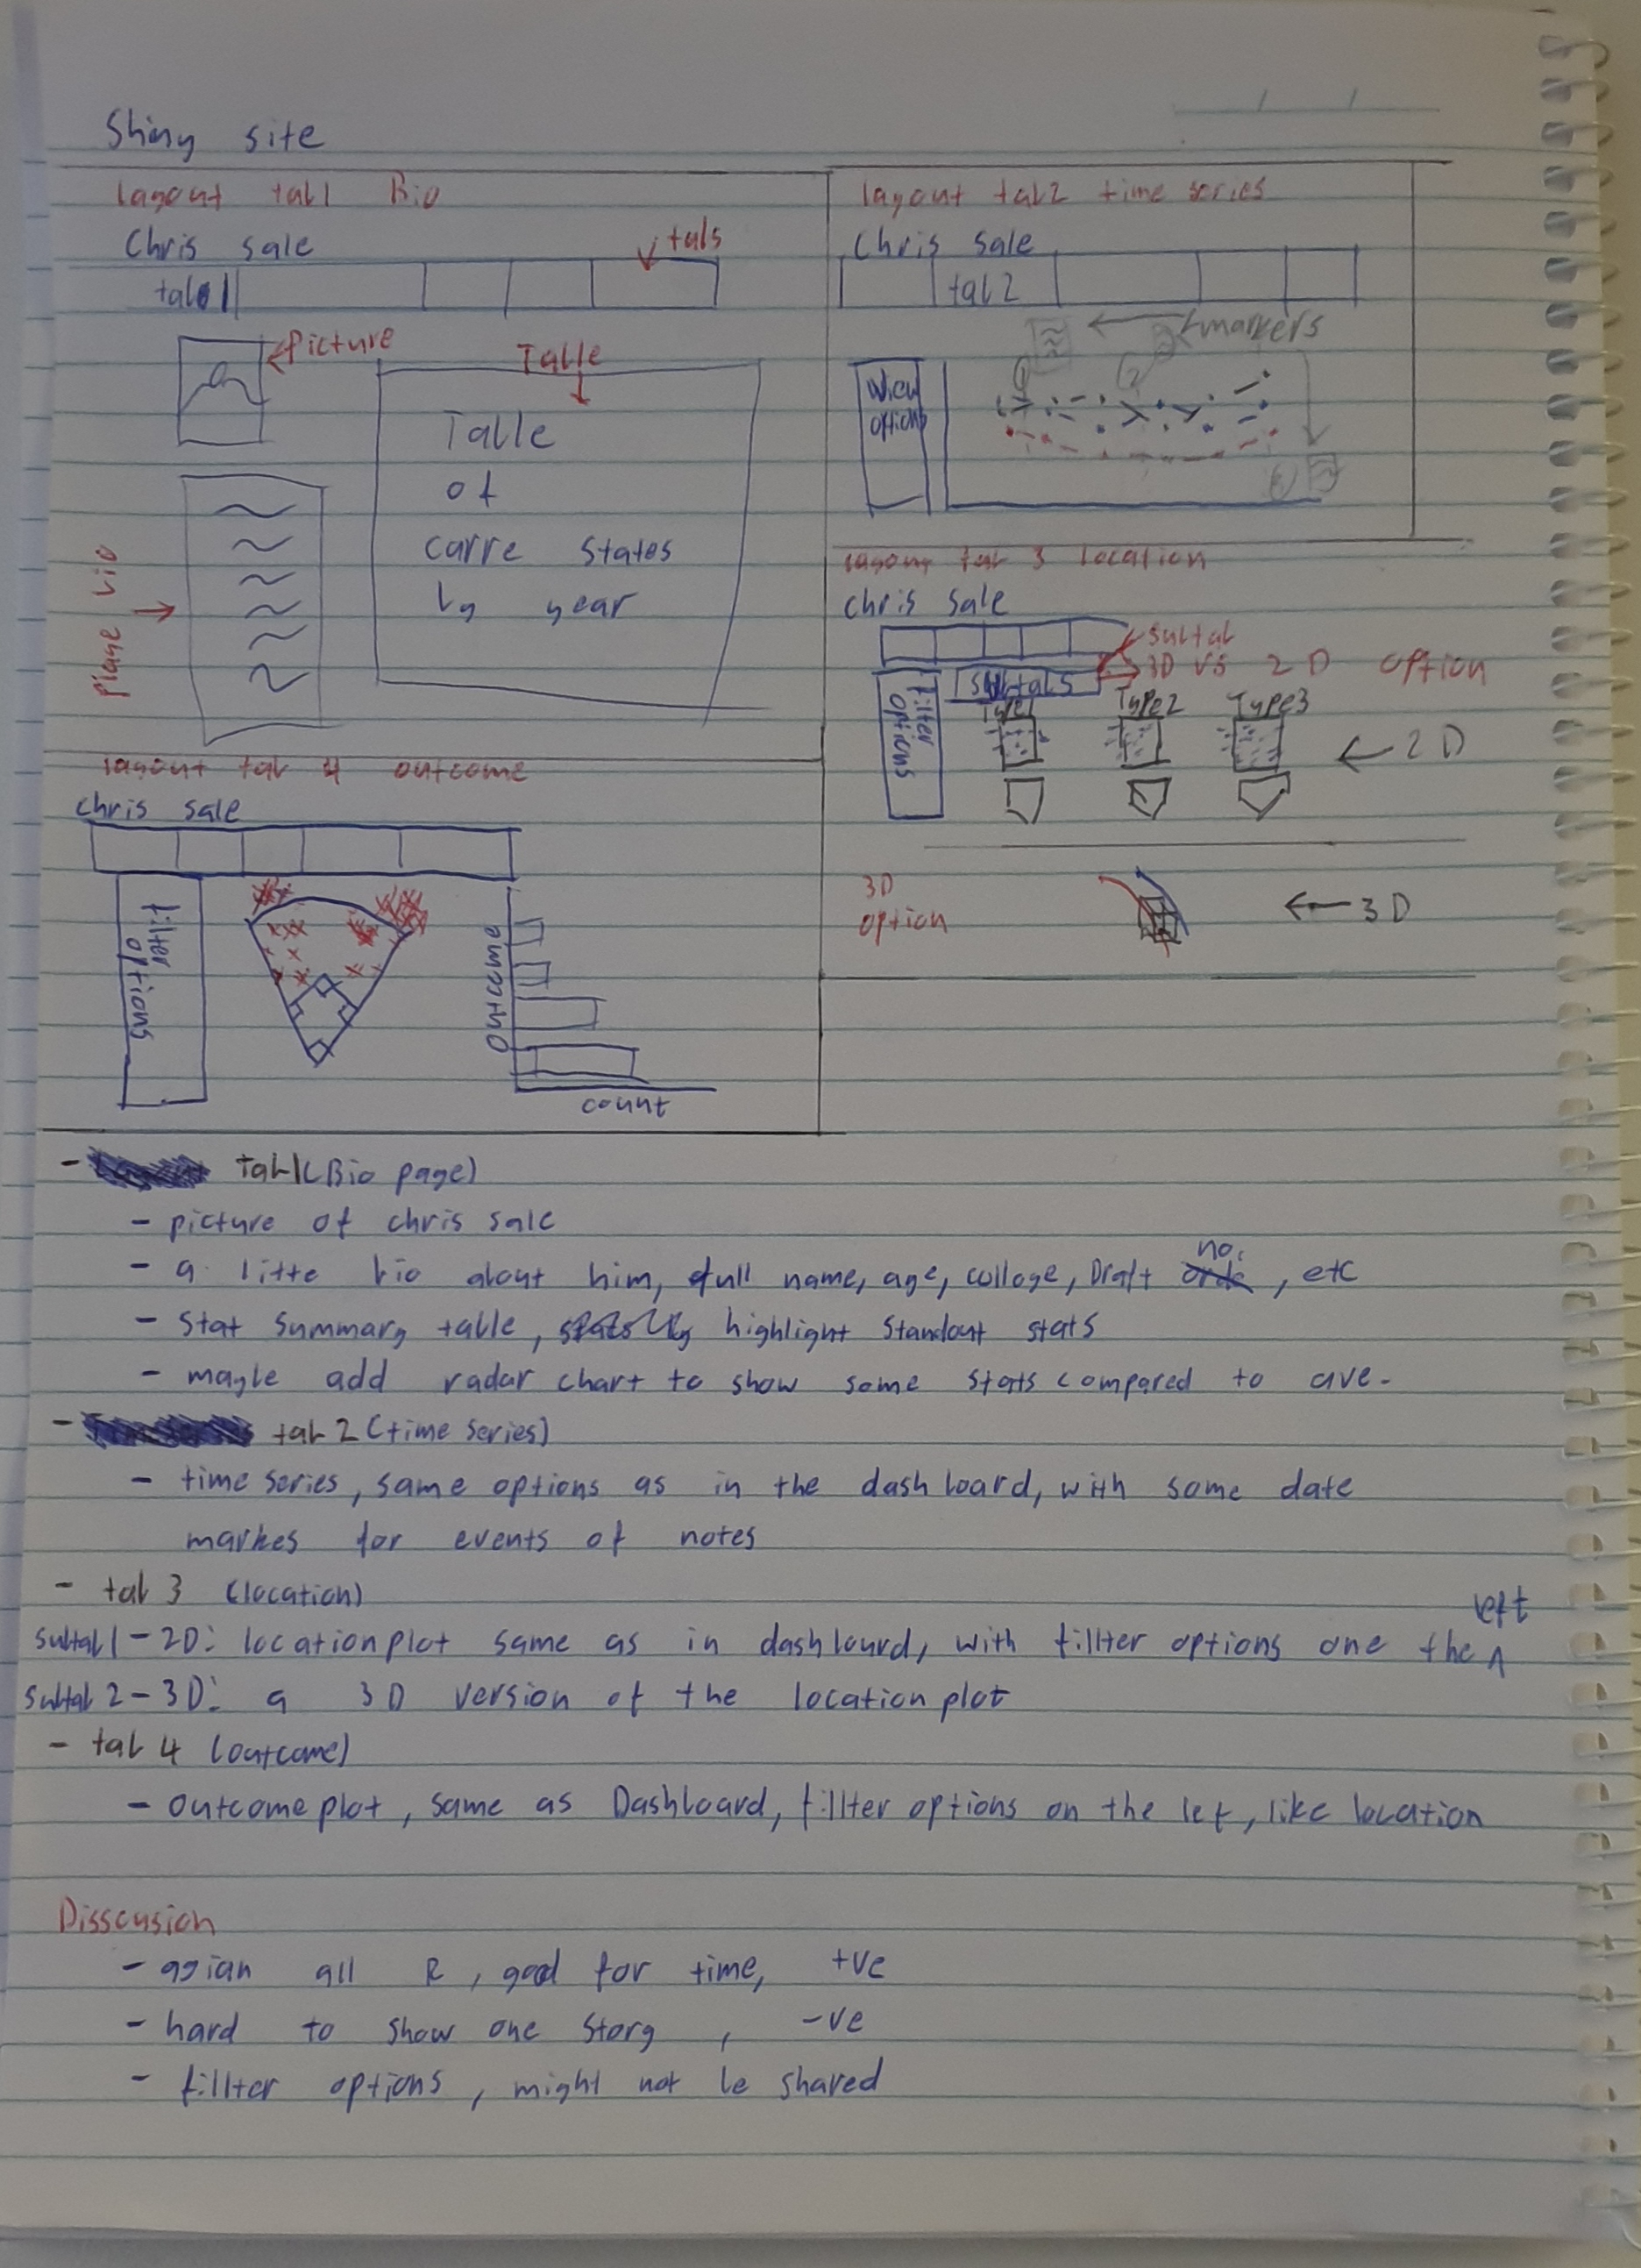 Shiny site
layout tab1 Bio
Chris sale
tabs
tab 1
Picture
Table
Table
of
carre states
by year
Playe bio
layout tab2 time series
Chris sale
tab 2
markers
1
2
3
View
options
layout tab 3 location
chris sale
subtab
3D vs 2D option
subtabs
Filter
options
Type1 Type2 Type3
2D
3D
option
3D
layout tab 4 outcome
chris sale
filter
options
Outcome
count
- tab1(Bio page)
- picture of chris sale
- a litte bio about him, full name, age, colloge, Draft no., etc
- stat summary table, highlight standout stats
- maybe add radar chart to show some stats compared to ave.
- tab 2 (time series)
- time series, same options as in the dashboard, with some date
markes for events of notes
- tab 3 (location)
subtab1-2D: location plot same as in dashbourd, with fillter options one the left
subtab 2-3D: a 3D version of the location plot
- tab 4 (outcome)
- outcome plot, same as Dashboard, fillter options on the left, like location
Disscusion
- agian all R, good for time, +ve
- hard to show one story, -ve
- fillter options, might not be shared